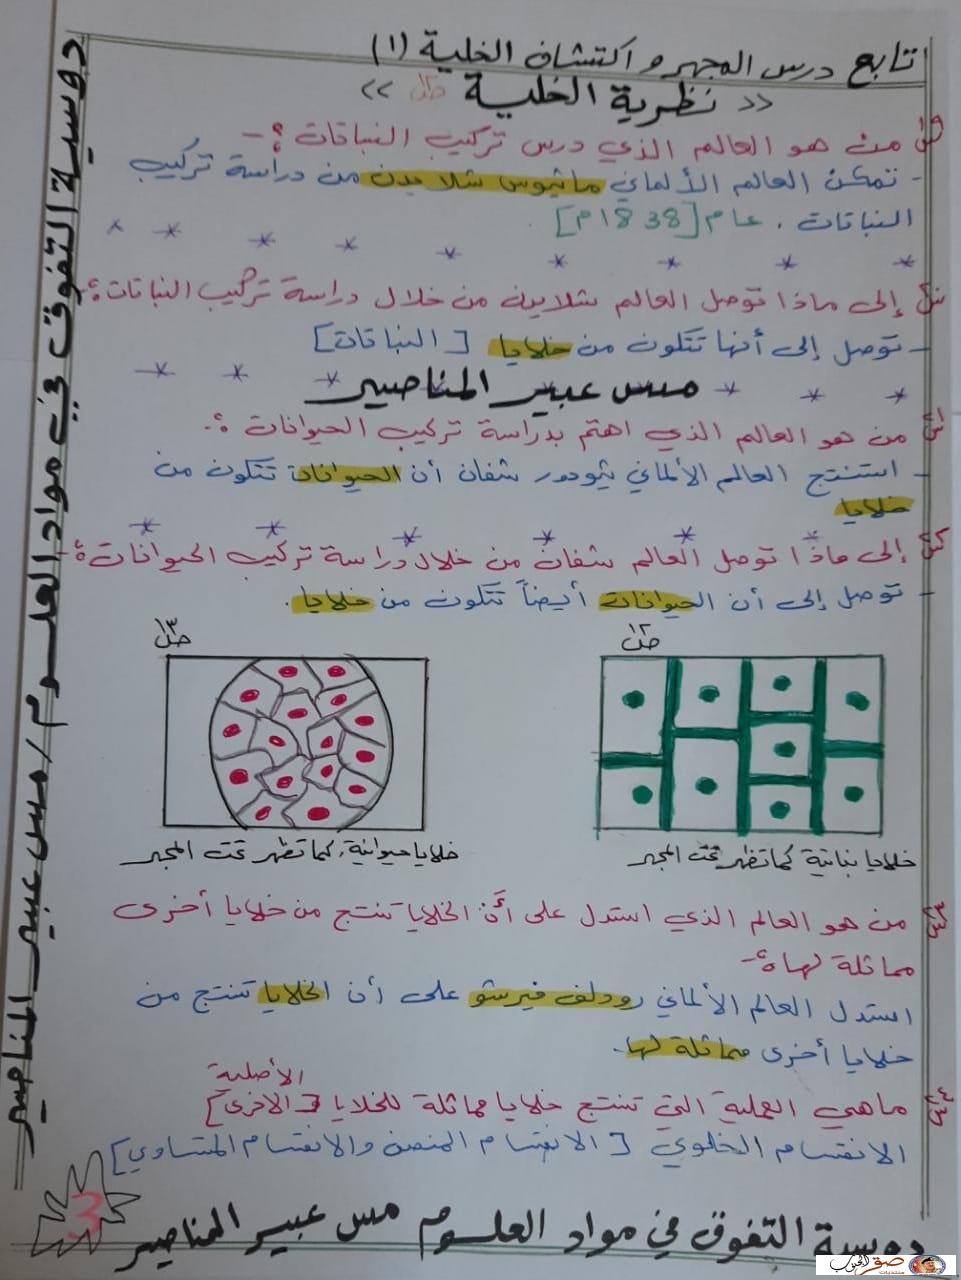 تابع درس المجهر واكتشاف الخلية (١)
<< نظرية الخلية ص١٢ >>
س/ من هو العالم الذي درس تركيب النباتات؟-
- تمكن العالم الألماني ماثيوس شلايدن من دراسة تركيب
النباتات . عام [1838م].
س/ إلى ماذا توصل العالم شلايدن من خلال دراسة تركيب النباتات؟-
- توصل إلى أنها تتكون من خلايا [النباتات]
مس عبير المناصير
س/ من هو العالم الذي اهتم بدراسة تركيب الحيوانات؟-
- استنتج العالم الألماني ثيودور شفان أن الحيوانات تتكون من
خلايا
س/ إلى ماذا توصل العالم شفان من خلال دراسة تركيب الحيوانات؟-
- توصل إلى أن الحيوانات أيضاً تتكون من خلايا.
ص١٢
ص١٣
خلايا نباتية كما تظهر تحت المجهر
خلايا حيوانية، كما تظهر تحت المجهر
س/ من هو العالم الذي استدل على أن الخلايا تنتج من خلايا أخرى
مماثلة لها؟-
استدل العالم الألماني رودلف فيرشو على أن الخلايا تنتج من
خلايا أخرى مماثلة لها.
الأصلية
س/ ماهي العملية التي تنتج خلايا مماثلة للخلايا [الاخرى]
الانقسام الخلوي [الانقسام المنصف والانقسام المتساوي]
3
دوسية التفوق في مواد العلوم مس عبير المناصير
دوسية التفوق في مواد العلوم / مس عبير المناصير
صقر الجنوب
منتديات